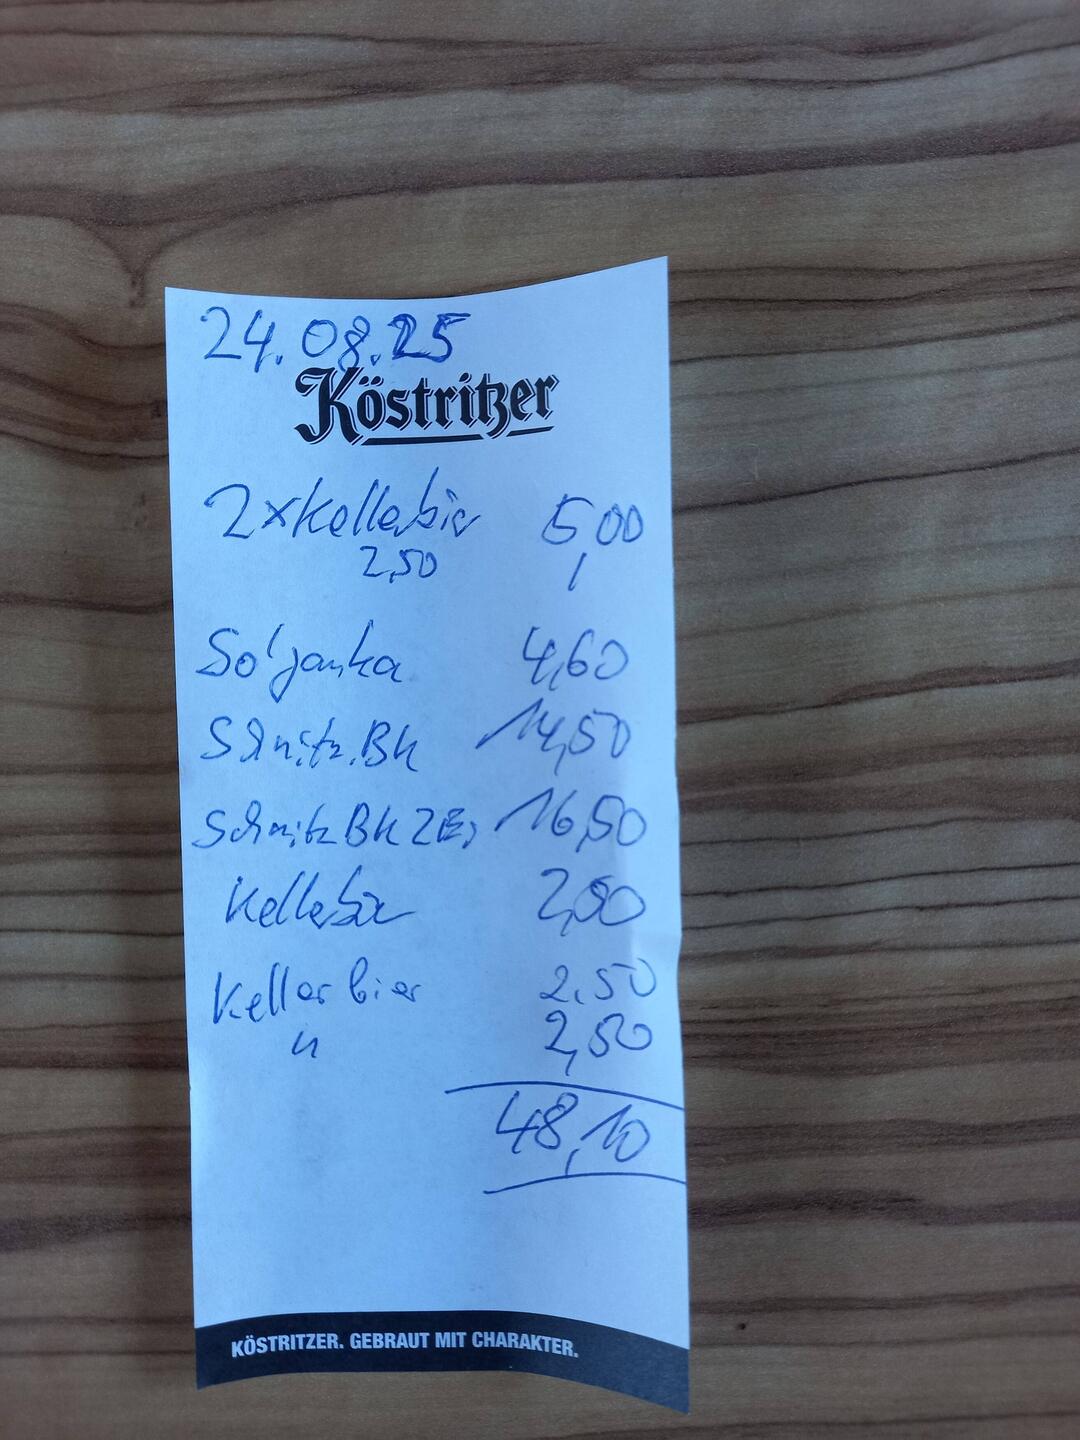 24.08.25
Köstritzer
2xKellerbier 5,00
2,50
Soljanka 4,60
Schnitz.BK 14,50
Schnitz BK 2Ei 16,50
Kellerbier 2,50
Kellerbier 2,50
" 2,50
48,10
KÖSTRITZER. GEBRAUT MIT CHARAKTER.